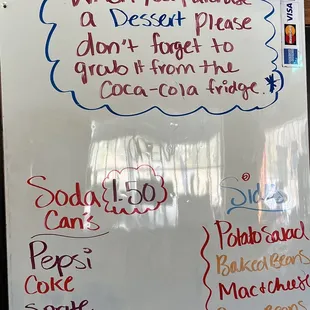 a Dessert please
don't forget to
grab it from the
Coca-cola fridge.*
VISA
Soda 1.50
Can's
Pepsi
Coke
Sides
Potato Salad
Baked Beans
Mac & cheese